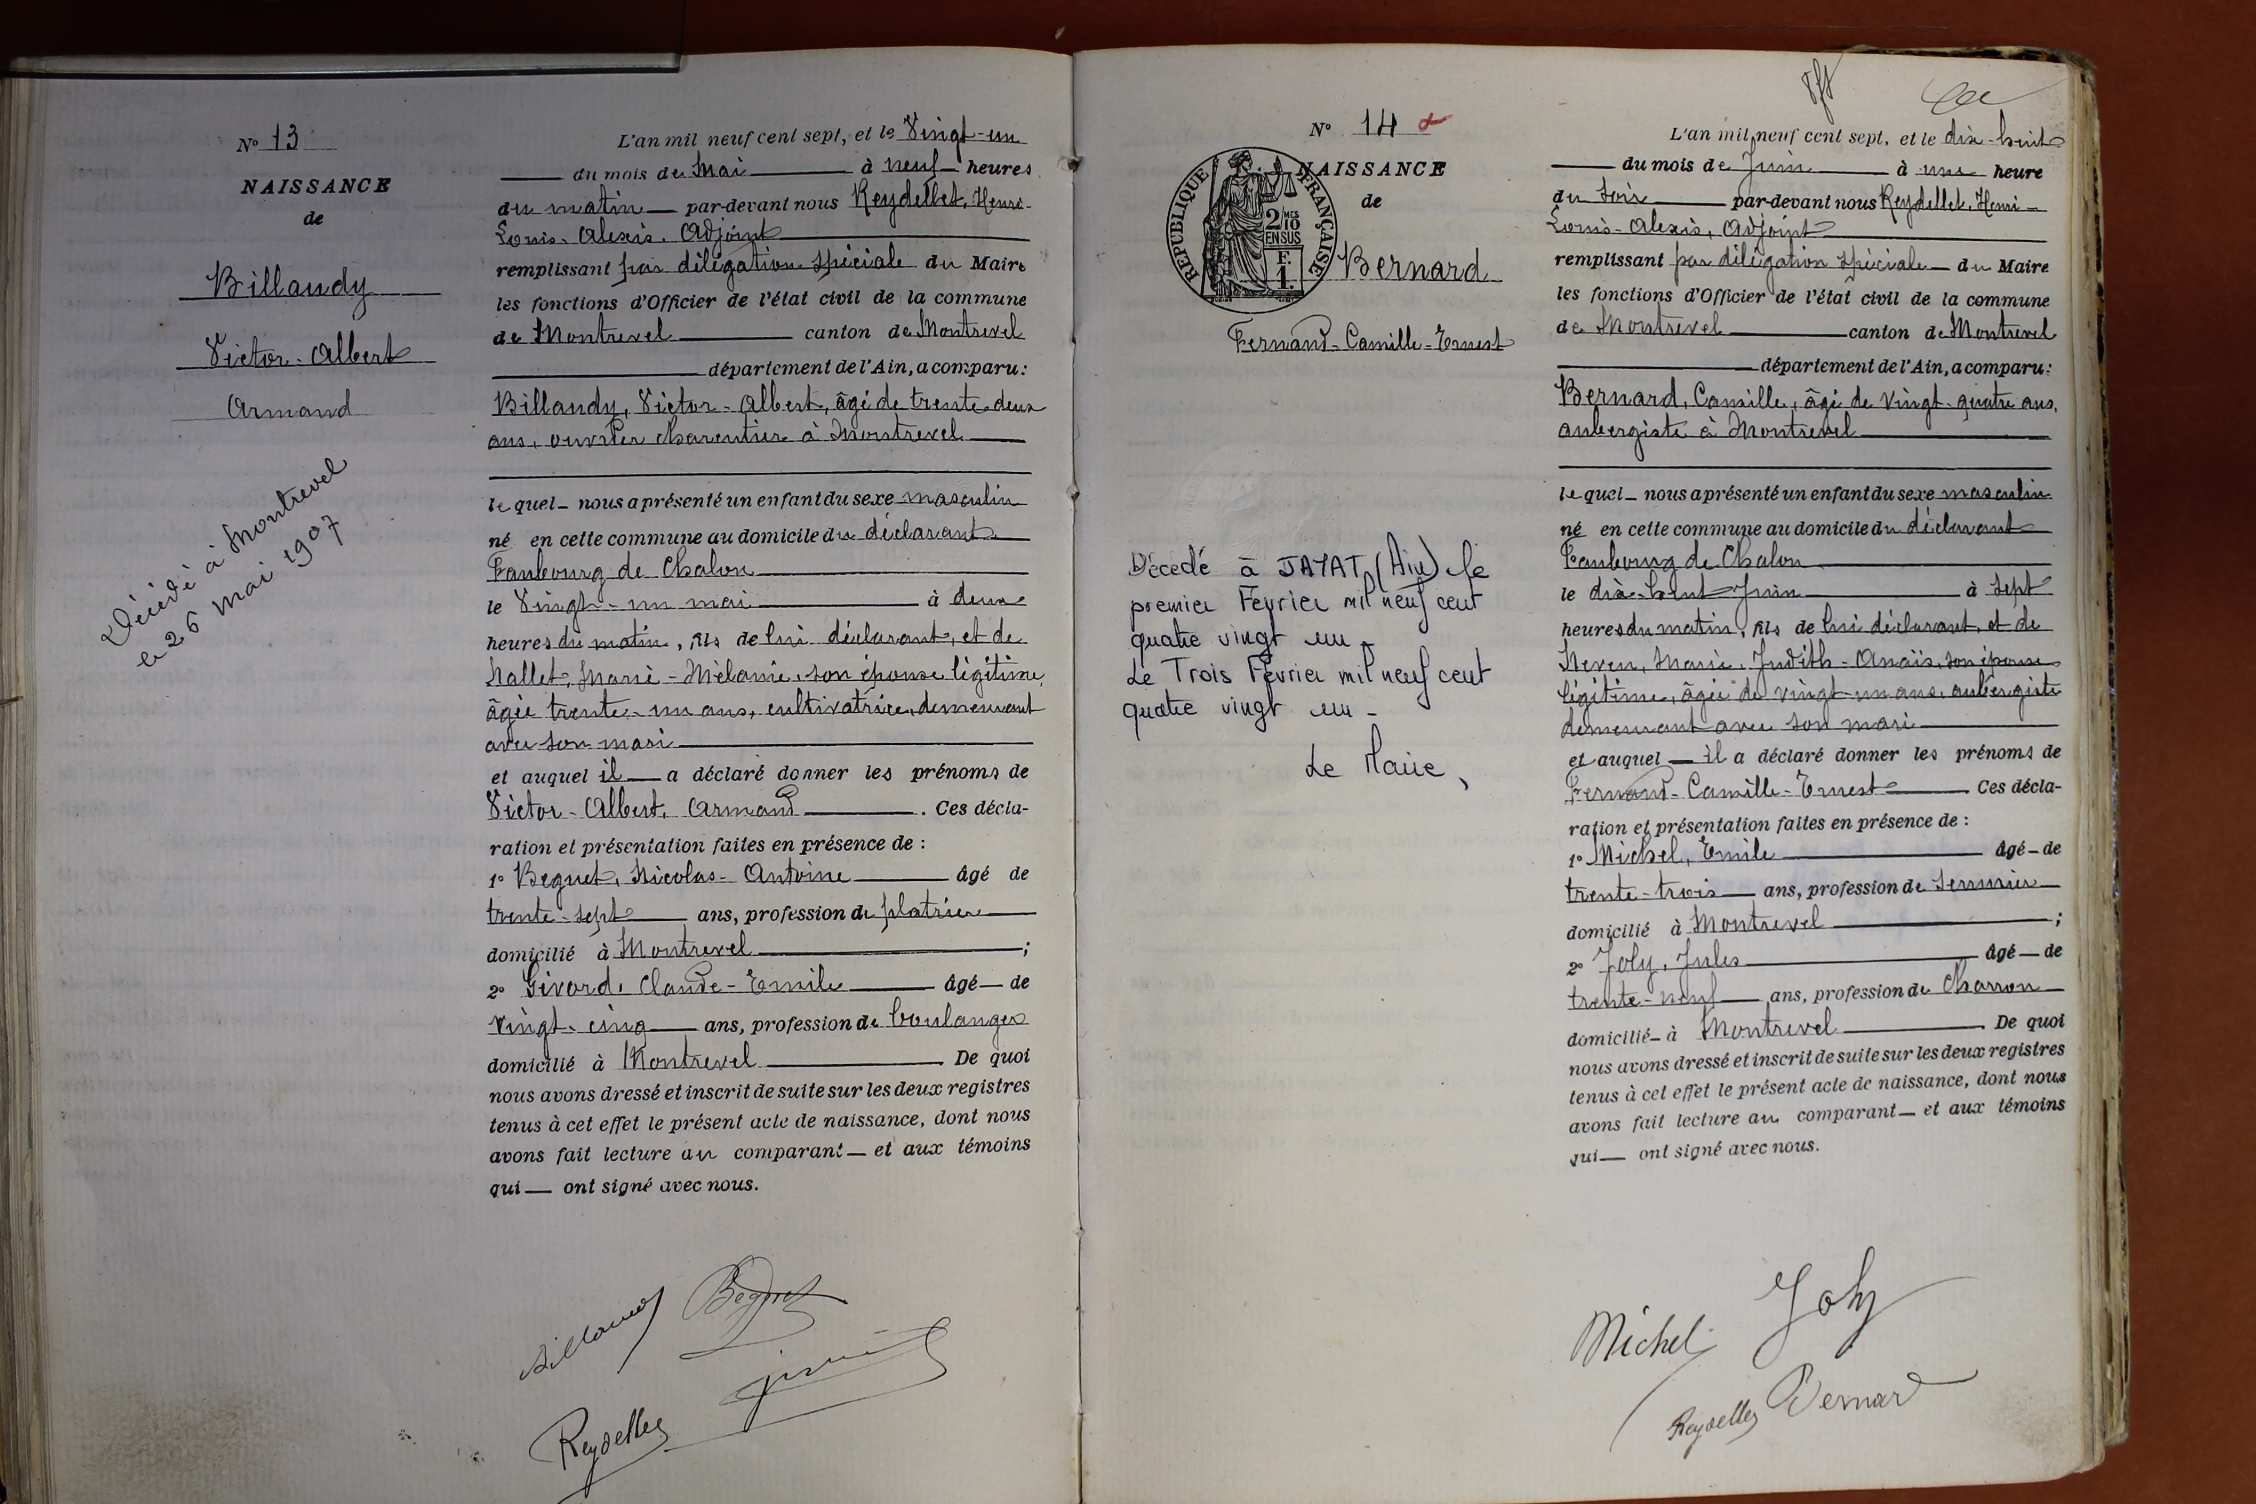 N° 13
NAISSANCE
de
Billaudy
Victor-Albert
Armand
Décédé à Montrevel
le 26 mai 1907
L'an mil neuf cent sept, et le Vingt-un
du mois de Mai à neuf heures
du matin par-devant nous Reydellet, Henri-
Louis-Alexis, Adjoint
remplissant par délégation spéciale du Maire
les fonctions d'Officier de l'état civil de la commune
de Montrevel canton de Montrevel
département de l'Ain, a comparu:
Billaudy, Victor-Albert, âgé de trente-deux
ans, ouvrier charpentier à Montrevel
lequel nous a présenté un enfant du sexe masculin
né en cette commune au domicile du déclarant
Faubourg de Chalon
le Vingt-un mai à deux
heures du matin, fils de lui déclarant, et de
Nallet, Marie-Mélanie, son épouse légitime,
âgée trente-un ans, cultivatrice, demeurant
avec son mari
et auquel il a déclaré donner les prénoms de
Victor-Albert, Armand. Ces décla-
ration et présentation faites en présence de :
1° Beguet, Nicolas-Antoine âgé de
trente-sept ans, profession de platrier
domicilié à Montrevel ;
2° Givord, Claude-Emile âgé de
vingt-cinq ans, profession de boulanger
domicilié à Montrevel. De quoi
nous avons dressé et inscrit de suite sur les deux registres
tenus à cet effet le présent acte de naissance, dont nous
avons fait lecture au comparant et aux témoins
qui ont signé avec nous.
Billaudy Beguet
Reydellet
N° 14
NAISSANCE
de
RÉPUBLIQUE FRANÇAISE
2/10 MES
EN SUS
F.
1.
Bernard
Fernand-Camille-Ernest
Décédé à JAYAT (Ain) le
premier Février mil neuf cent
quatre vingt un -
Le Trois Février mil neuf cent
quatre vingt un -
Le Maire,
L'an mil neuf cent sept, et le dix-huit
du mois de Juin à une heure
du soir par-devant nous Reydellet, Henri-
Louis-Alexis, Adjoint
remplissant par délégation spéciale du Maire
les fonctions d'Officier de l'état civil de la commune
de Montrevel canton de Montrevel
département de l'Ain, a comparu:
Bernard, Camille, âgé de vingt-quatre ans,
aubergiste à Montrevel
lequel nous a présenté un enfant du sexe masculin
né en cette commune au domicile du déclarant
Faubourg de Chalon
le dix-huit Juin à sept
heures du matin, fils de lui déclarant, et de
Marie, Judith-Anaïs, son épouse
légitime, âgée de vingt-un ans, aubergiste
demeurant avec son mari
et auquel il a déclaré donner les prénoms de
Fernand-Camille-Ernest Ces décla-
ration et présentation faites en présence de :
1° Michel, Emile âgé de
trente-trois ans, profession de serrurier
domicilié à Montrevel ;
2° Joly, Jules âgé de
trente-neuf ans, profession de charron
domicilié à Montrevel. De quoi
nous avons dressé et inscrit de suite sur les deux registres
tenus à cet effet le présent acte de naissance, dont nous
avons fait lecture au comparant et aux témoins
qui ont signé avec nous.
Michel Joly
Reydellet Bernard